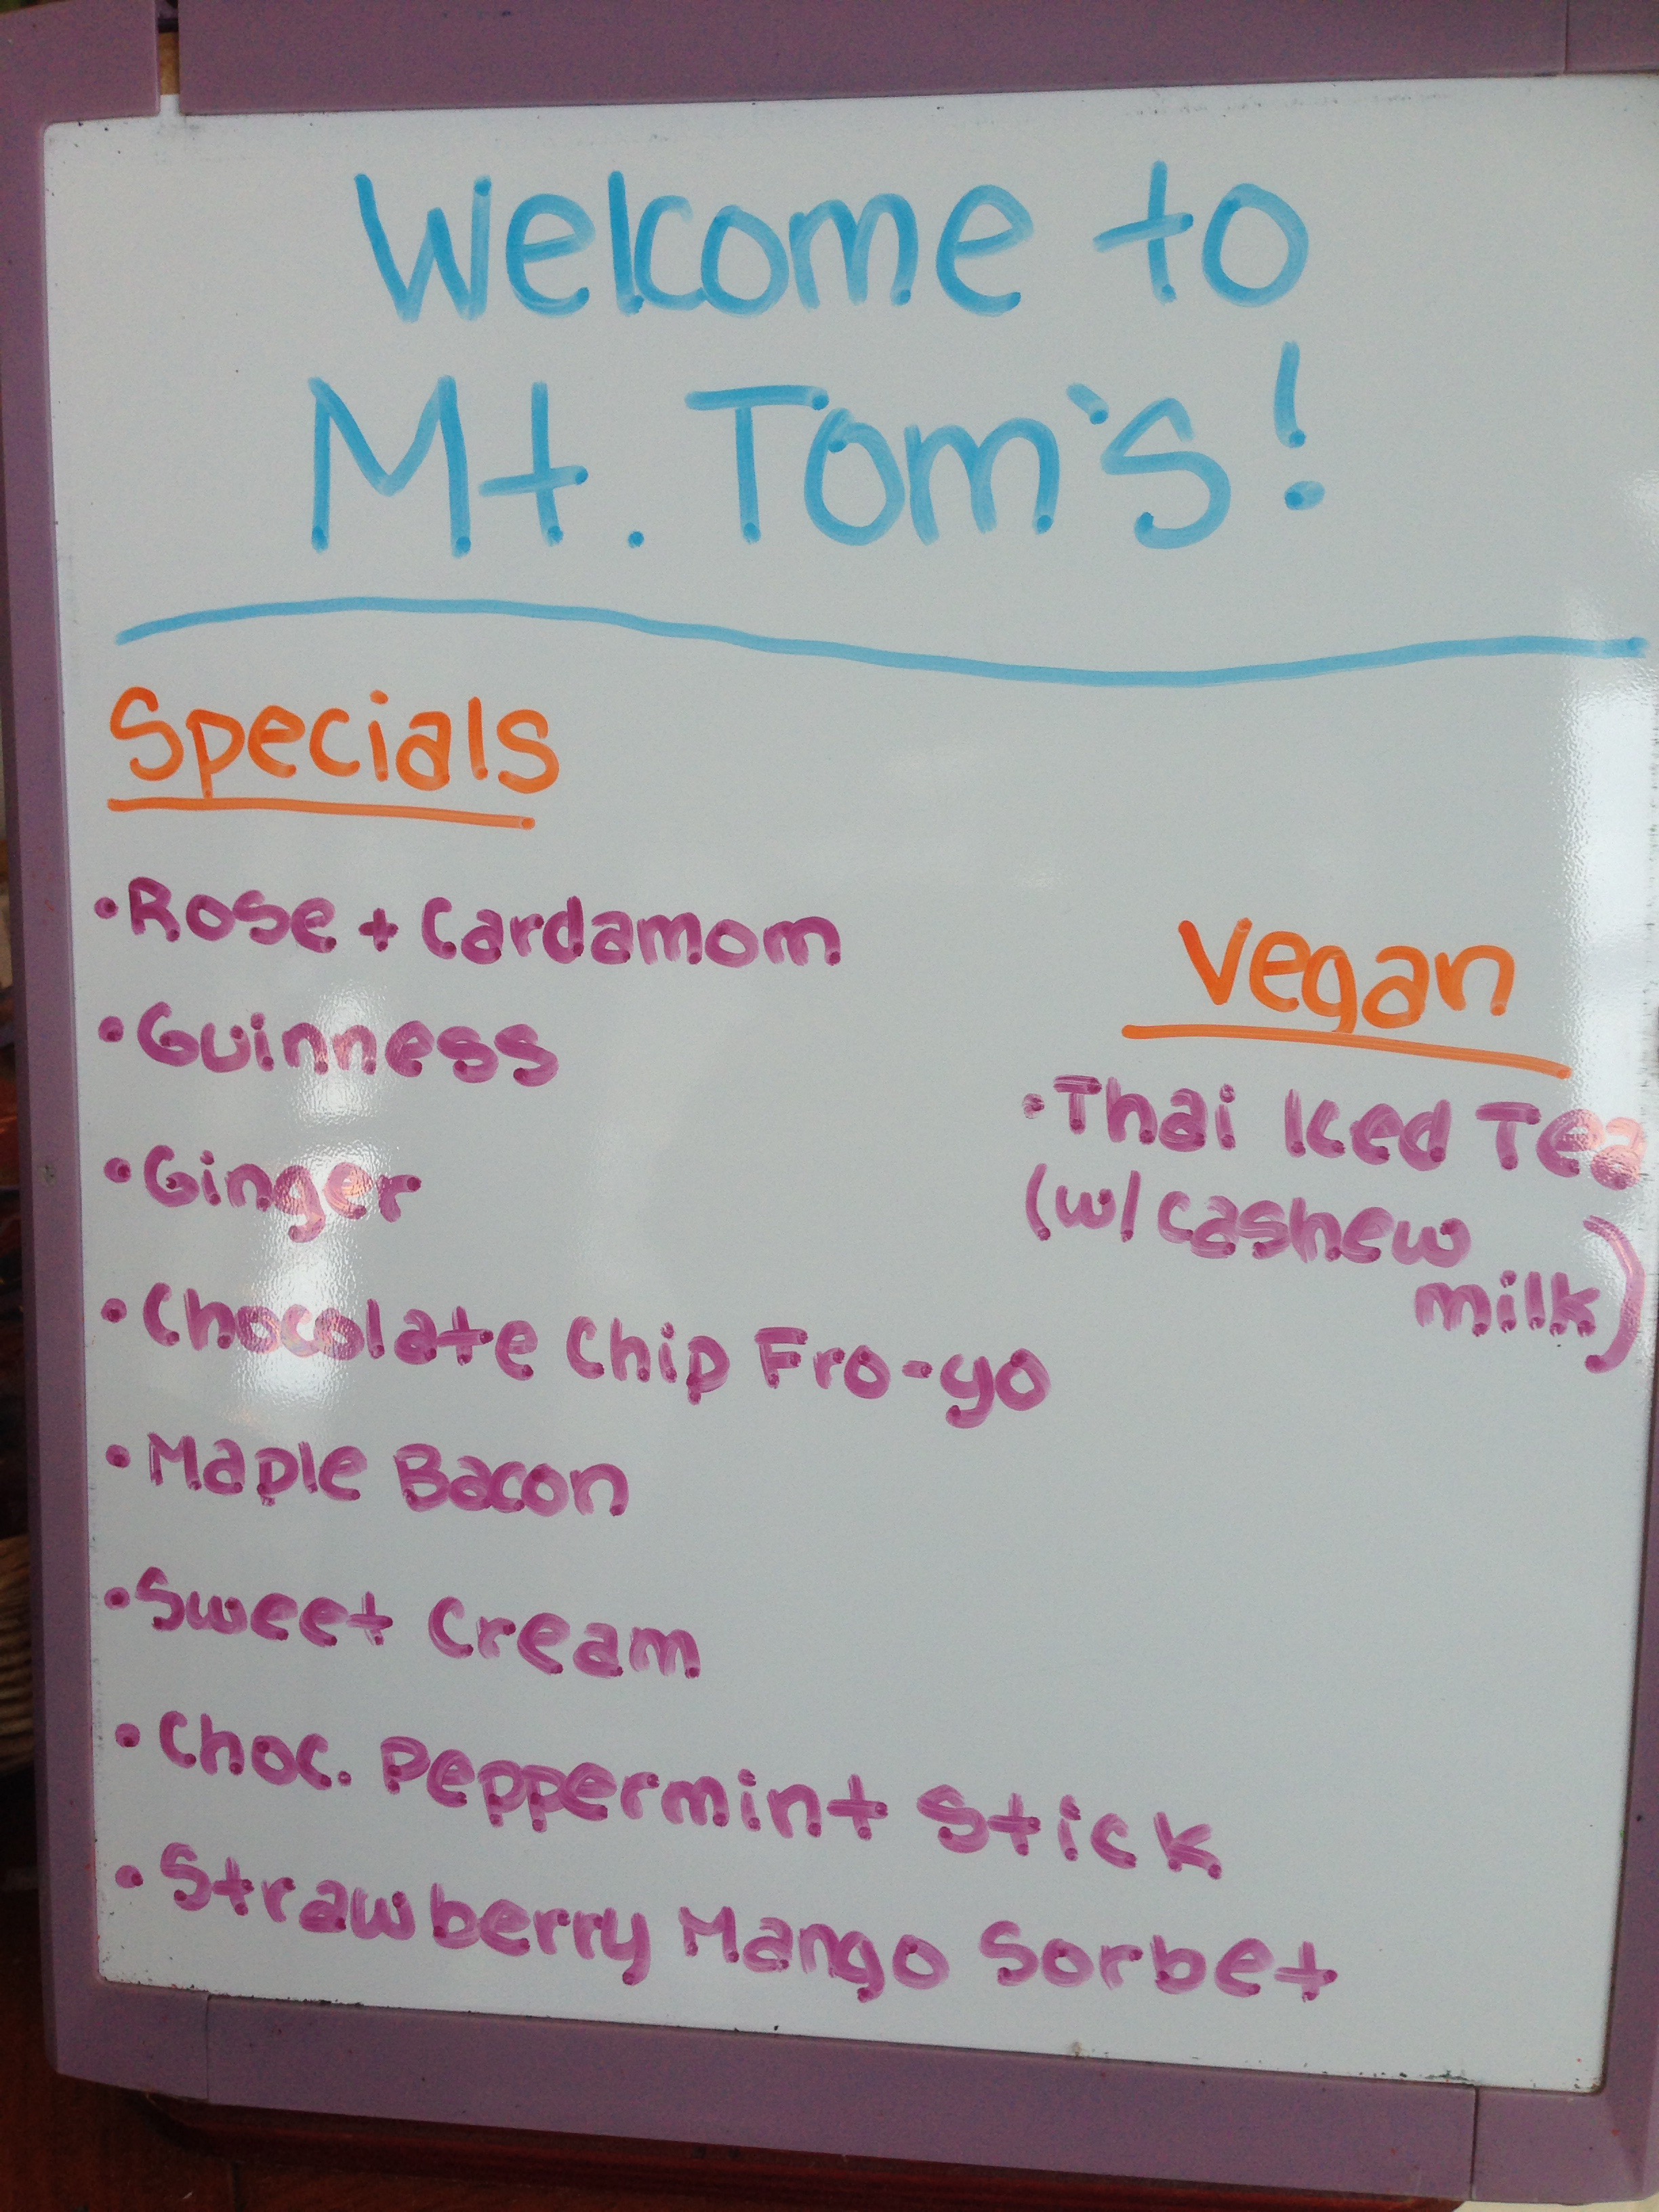 Welcome to
Mt. Tom's!
Specials
• Rose + Cardamom
• Guinness
• Ginger
• Chocolate Chip Fro-yo
• Maple Bacon
• Sweet Cream
• Choc. Peppermint Stick
• Strawberry Mango Sorbet
Vegan
• Thai Iced Tea
(w/ cashew
milk)